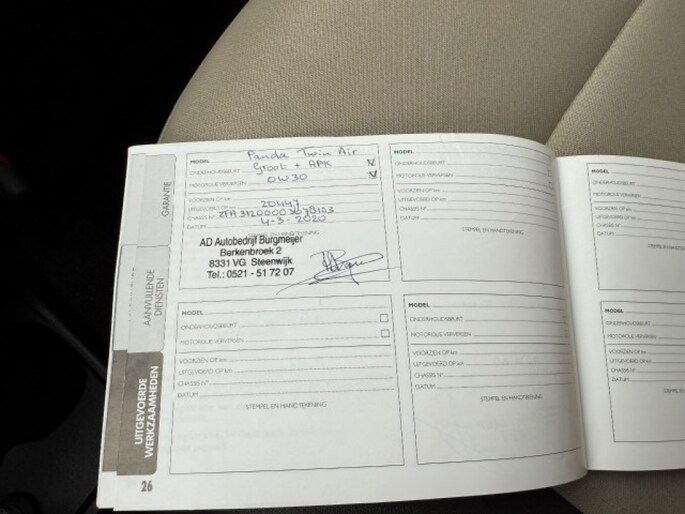 GARANTIE
AANVULLENDE
DIENSTEN
UITGEVOERDE
WERKZAAMHEDEN
MODEL Panda Twin Air
ONDERHOUDSBEURT Groot + APK
MOTOROLIE VERVERSEN 0W30
VOORZIEN OP km
UITGEVOERD OP km 20447
CHASSIS N°
DATUM 4-3-2020
STEMPEL EN HANDTEKENING
AD Autobedrijf Burgmeijer
Berkenbroek 2
8331 VG Steenwijk
Tel.: 0521 - 51 72 07
MODEL
ONDERHOUDSBEURT
MOTOROLIE VERVERSEN
VOORZIEN OP km
UITGEVOERD OP km
CHASSIS N°
DATUM
STEMPEL EN HANDTEKENING
MODEL
ONDERHOUDSBEURT
MOTOROLIE VERVERSEN
VOORZIEN OP km
UITGEVOERD OP km
CHASSIS N°
DATUM
STEMPEL EN HANDTEKENING
MODEL
ONDERHOUDSBEURT
MOTOROLIE VERVERSEN
VOORZIEN OP km
UITGEVOERD OP km
CHASSIS N°
DATUM
STEMPEL EN HANDTEKENING
MODEL
ONDERHOUDSBEURT
MOTOROLIE VERVERSEN
VOORZIEN OP km
UITGEVOERD OP km
CHASSIS N°
DATUM
MODEL
ONDERHOUDSBEURT
MOTOROLIE VERVERSEN
VOORZIEN OP km
UITGEVOERD OP km
CHASSIS N°
DATUM
26